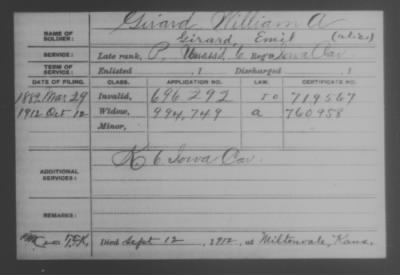 Girard, William A
NAME OF SOLDIER:
Girard, Emil (alias)
SERVICE: Late rank, P, Unass'd, 6 Reg't Iowa Cav
TERM OF SERVICE: Enlisted , 1 Discharged , 1
DATE OF FILING. CLASS. APPLICATION NO. LAW. CERTIFICATE NO.
1889 Mar 29 Invalid, 696292 719567
1912 Oct 12 Widow, 994,749 a 760958
Minor,
K 6 Iowa Cav.
ADDITIONAL SERVICES:
REMARKS:
Died Sept 12, 1912, at Miltonvale, Kans.